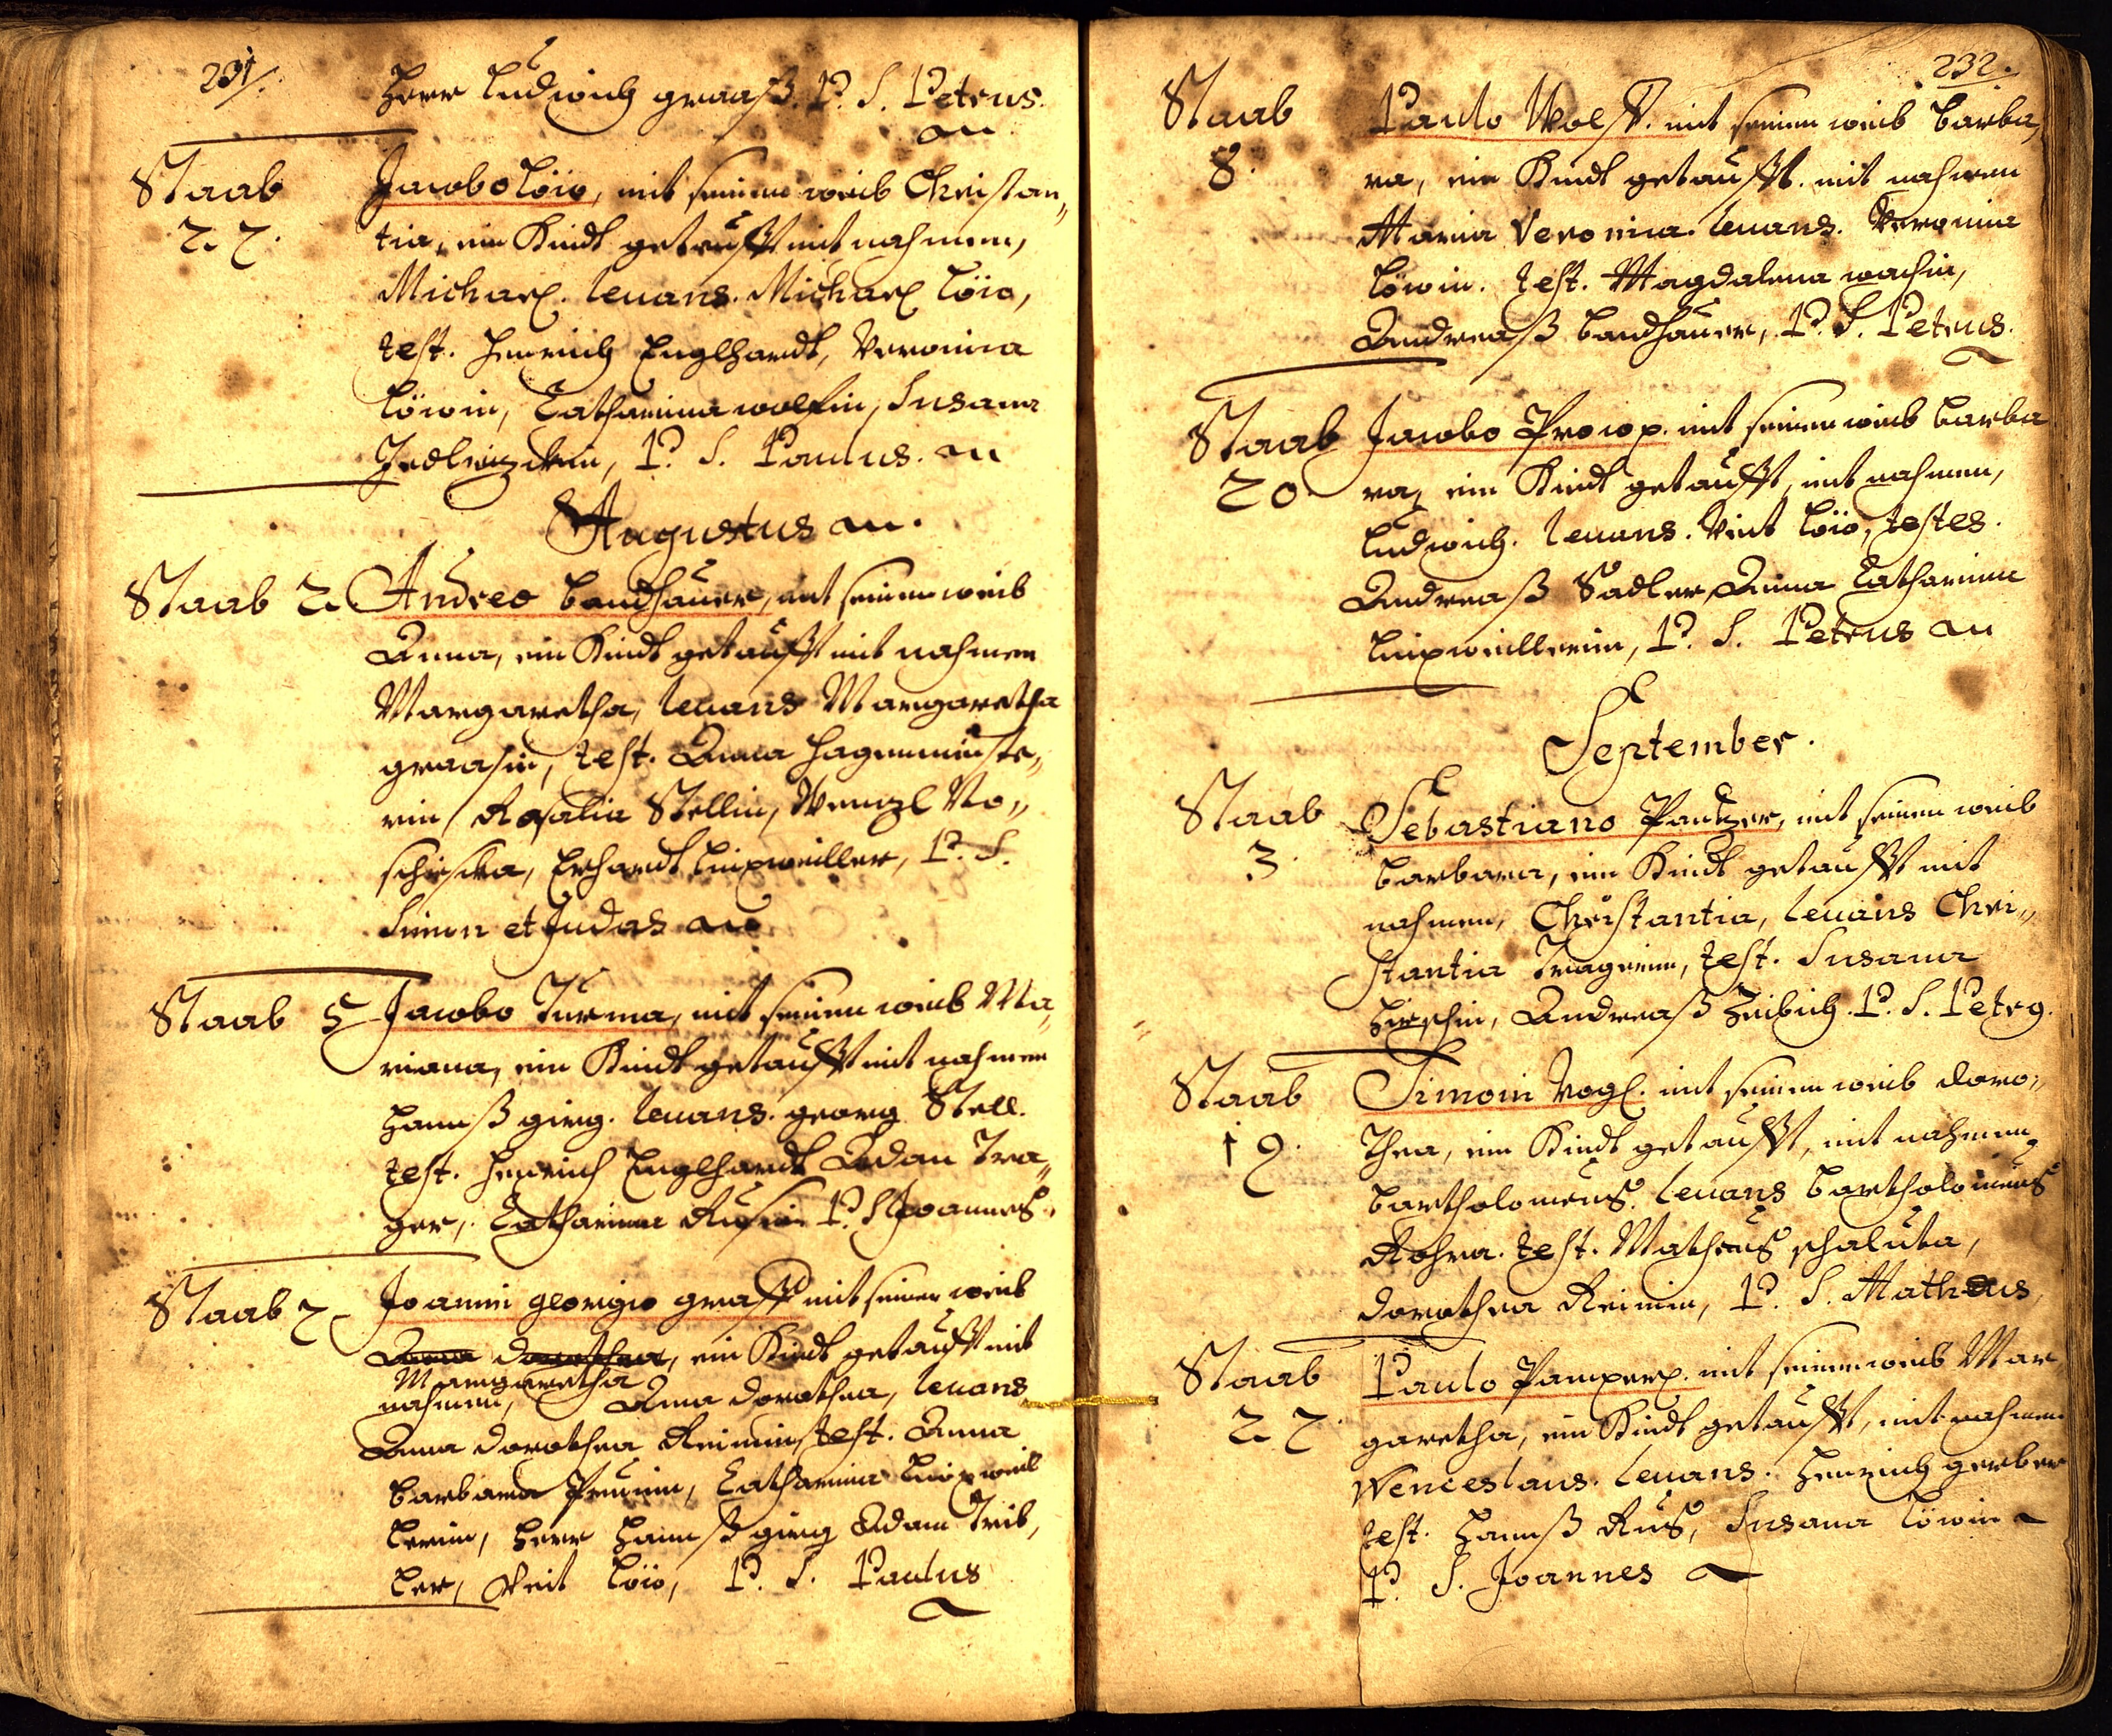 231.
Herr Ludwich graaß. P. S. Petrus.
Staab Jacobo Löw, mit seinem weib Christan„
27. tia, ein Kindt getaufft mit nahmen,
Michael. levans. Michael Löw,
test. Henrich Englhardt, Veronica
Löwin, Catharina wolfin, Susana
P. S. Paulus.
Augustus
Staab 2. Andreo Bandhauer, mit seinem weib
Anna, ein Kindt getaufft mit nahmen
Margaretha, levans Margaretha
graasin, test. Anna Hagenmüste„
rin, Rosalia Stellin, Wenzl Wo„
schiska, Erhardt Linxweiller, P. S.
Simon et Judas
Staab 5 Jacobo Turma, mit seinem weib Ma„
riana, ein Kindt getaufft mit nahmen
Hannß girg. levans. georg Stell.
test. Henrich Englhardt Adam Tra„
ger, Catharina Rusin P. S. Joannes.
Staab 7 Joanni georgio graß mit seinem weib
Anna Dorothea, ein Kindt getaufft mit
Margaretha
nahmen, Anna Dorothea, levans
Anna Dorothea Reimin, test. Anna
Barbara Catharina Linxweil
lerin, Herr Hannß girg Adam Trib,
ler, Veit Löw, P. S. Paulus
232.
Staab Paulo Wolff. mit seinem weib Barba,
8. ra, ein Kindt getaufft. mit nahmen
Maria Veronica. levans. Veronica
Löwin. test. Magdalena
Andreaß Bandhauer, P. S. Petrus.
Staab Jacobo Procop. mit seinem weib Barba
20. ra, ein Kindt getaufft, mit nahmen,
Ludwich. levans. Veit Löw, testes.
Andreaß Sadler, Anna Catharina
Linxweillerin, P. S. Petrus
September.
Staab Sebastiano Pantzer, mit seinem weib
3. Barbara, ein Kindt getaufft mit
nahmen, Christantia, levans Chri„
stantia Tragerin, test. Susana
Hirschin, Andreaß P. S. Petrg.
Staab Simoni Vogl. mit seinem weib Doro„
19. thea, ein Kindt getaufft, mit nahmen,
Bartholomeus. levans Bartholomeus
Rohra. test. Matheus schaluta,
Dorothea Reimin, P. S. Matheus,
Staab Paulo Pamperl. mit seinem weib Mar
27. garetha, ein Kindt getaufft, mit nahmen
Wenceslaus. levans. Henrich gerber
test. Hannß Rus, Susana Löwin
P. S. Joannes